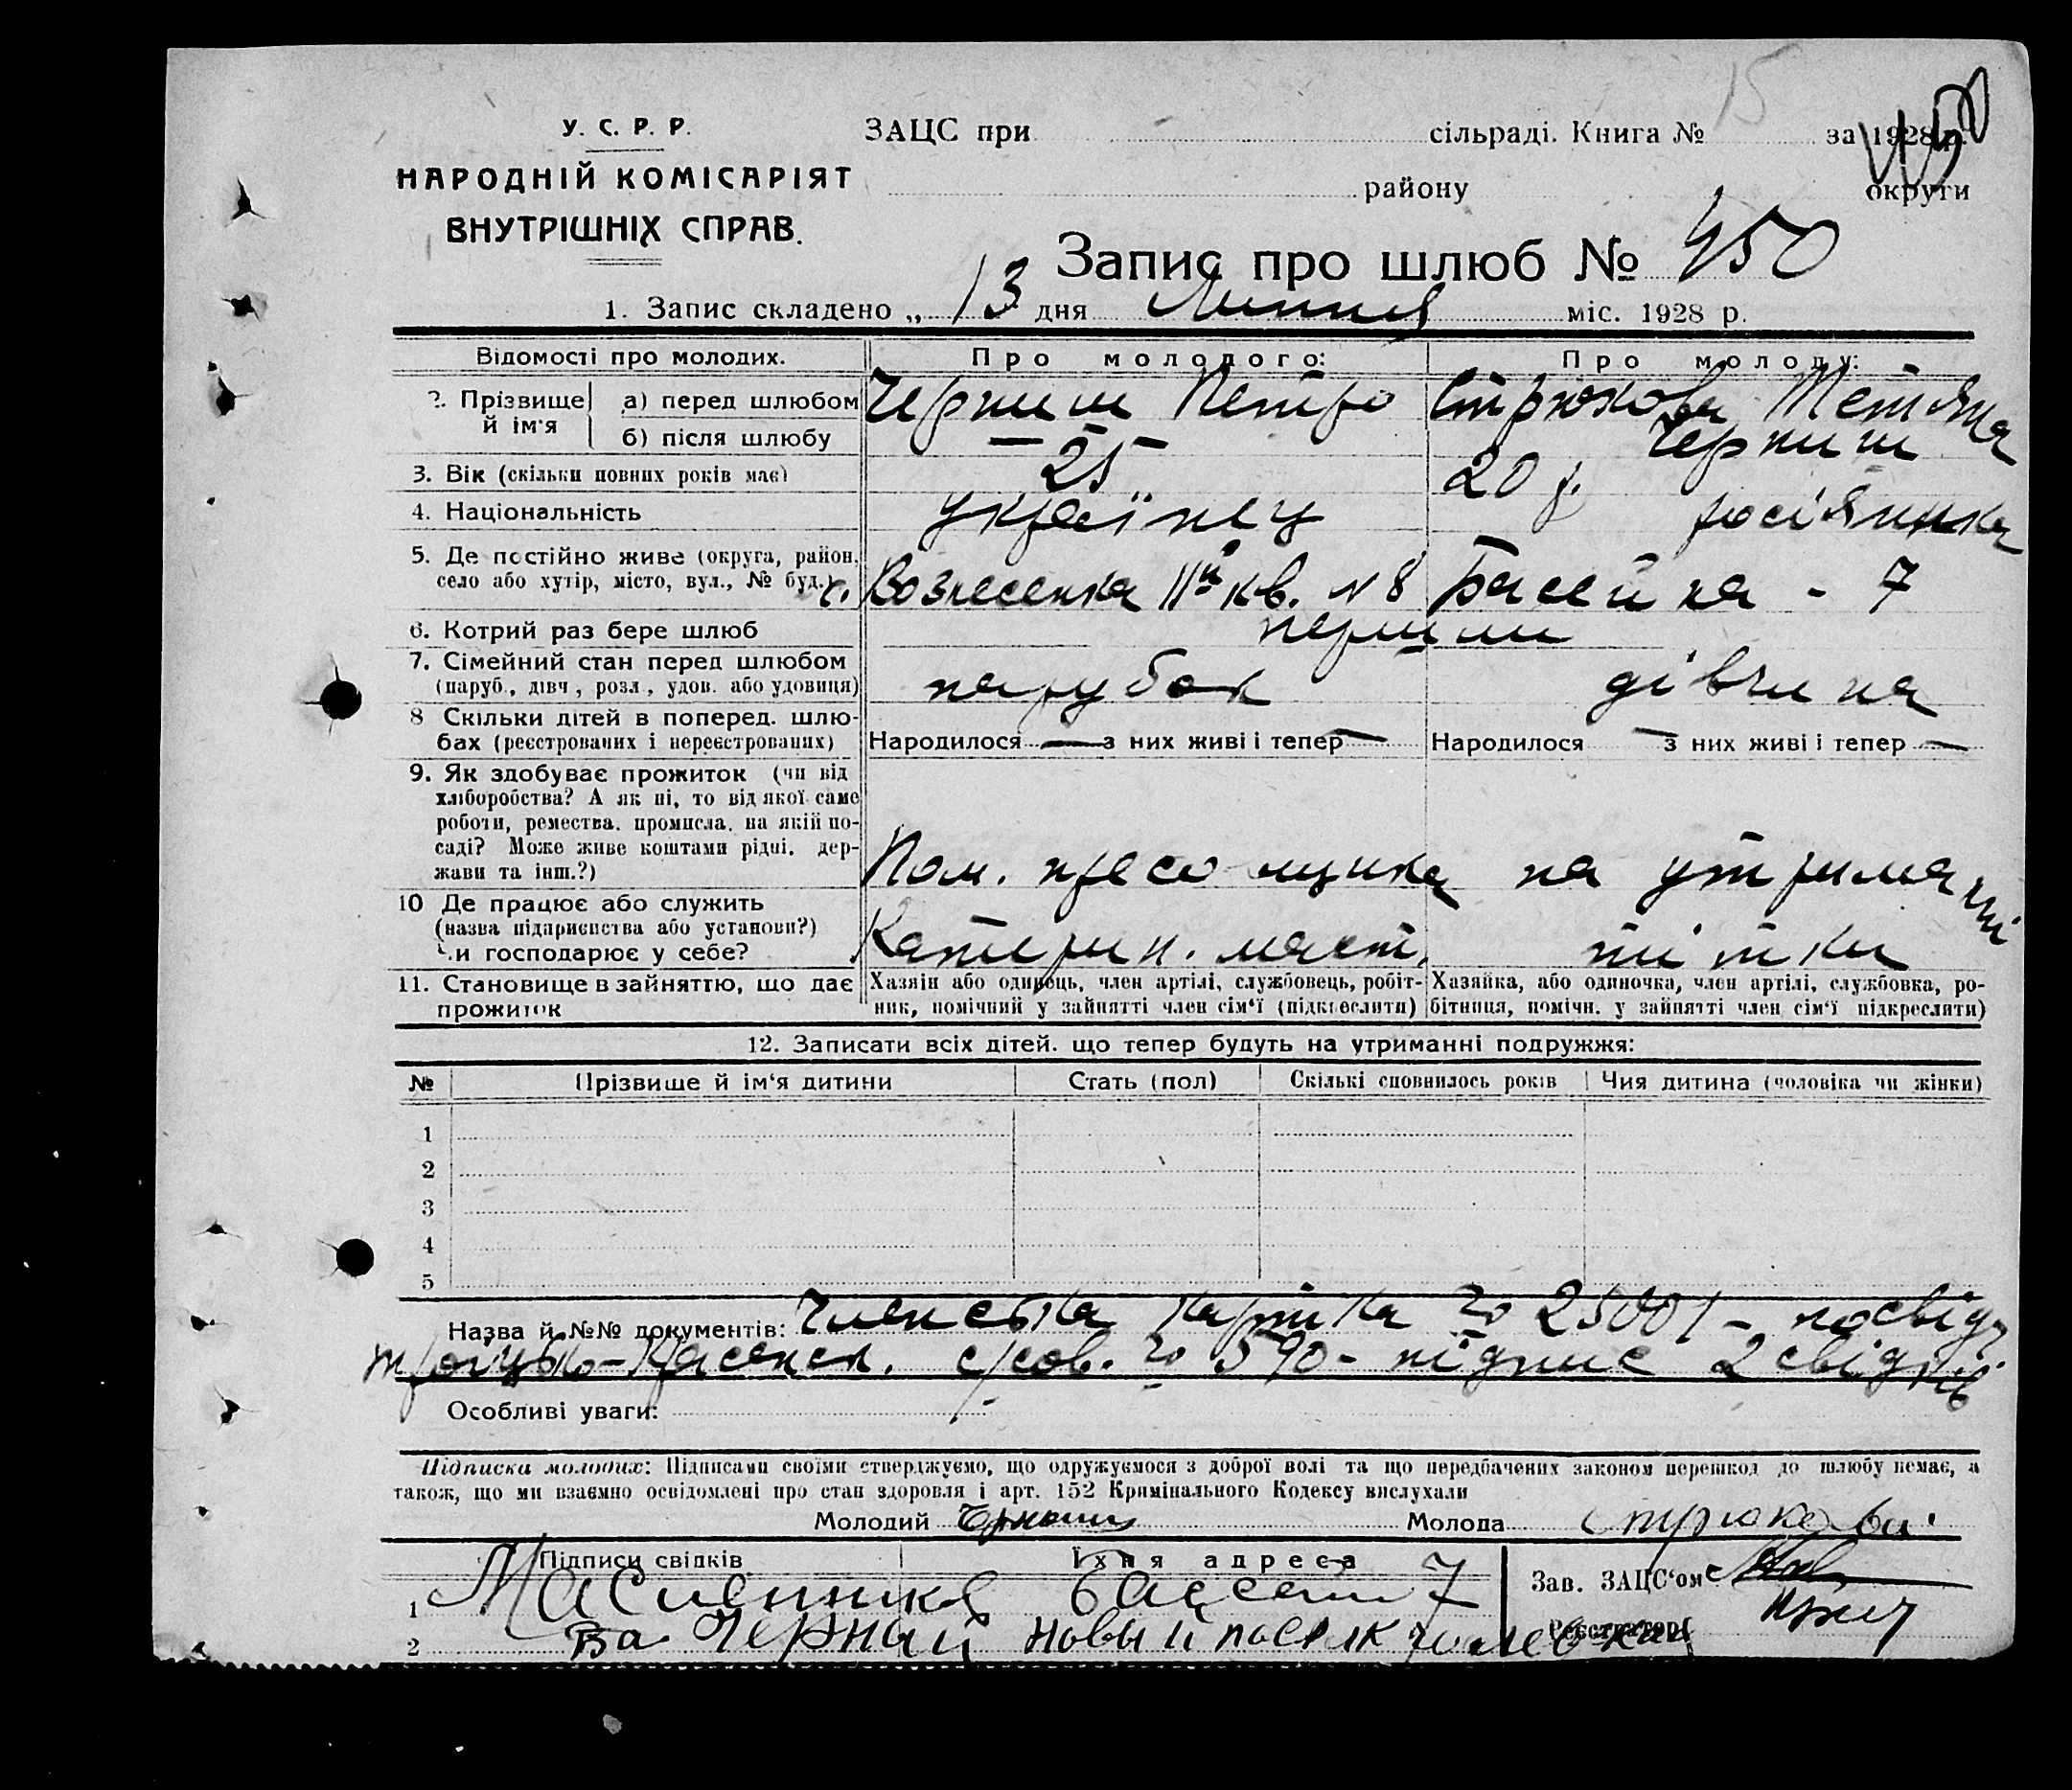 15
У. С. Р. Р.
НАРОДНІЙ КОМІСАРІЯТ
ВНУТРІШНІХ СПРАВ.
ЗАЦС при сільраді. Книга № за 1928 р.
району округи
Запис про шлюб № 450
1. Запис складено „ 13 дня Липня міс. 1928 р.
Відомості про молодих. Про молодого: Про молоду:
2. Прізвище й ім'я а) перед шлюбом Черниш Петро Стрюкова Тетяна
б) після шлюбу — " — Черниш
3. Вік (скільки повних років має) 25 20 р.
4. Національність українец росіянка
5. Де постійно живе (округа, район, село або хутір, місто, вул., № буд.) с. Вознесенка 11й кв. №8 Басейна - 7
6. Котрий раз бере шлюб перший
7. Сімейний стан перед шлюбом (паруб., дівч., розл., удов. або удовиця) парубок дівчина
8 Скільки дітей в поперед. шлюбах (реєстрованих і нереєстрованих) Народилося — з них живі і тепер — Народилося — з них живі і тепер —
9. Як здобуває прожиток (чи від хліборобства? А як ні, то від якої саме роботи, ремества, промисла, на якій посаді? Може живе коштами рідні, держави та інш.?) Пом. пресовщика на утриманні
10 Де працює або служить (назва підприєнства або установи?) Чи господарює у себе? Катерин. маст. тітки
11. Становище в зайняттю, що дає прожиток Хазяїн або одинець, член артілі, службовець, робітник, помічний у зайнятті член сім'ї (підкреслити) Хазяйка, або одиночка, член артілі, службовка, робітниця, помічн. у зайнятті член сім'ї підкресляти)
12. Записати всіх дітей. що тепер будуть на утриманні подружжя:
№ Прізвище й ім'я дитини Стать (пол) Скількі сповнилось років Чия дитина (чоловіка чи жінки)
1
2
3
4
5
Назва й №№ документів: Членська картка № 25001 - посвідч.
Троїцько-Красенск. с/сов. № 590 - підпис 2 свідків
Особливі уваги:
Підписка молодих: Підписами своїми стверджуємо, що одружуємося з доброї волі та що передбачених законом перешкод до шлюбу немає, а
також, що ми взаємно освідомлені про стан здоровля і арт. 152 Кримінального Кодексу вислухали
Молодий Черныш Молода Стрюкова
Підписи свідків Їхня адреса Зав. ЗАЦС'ом
1 Масленника Бассейн 7
2 Черный Новый поселк Реєстратор